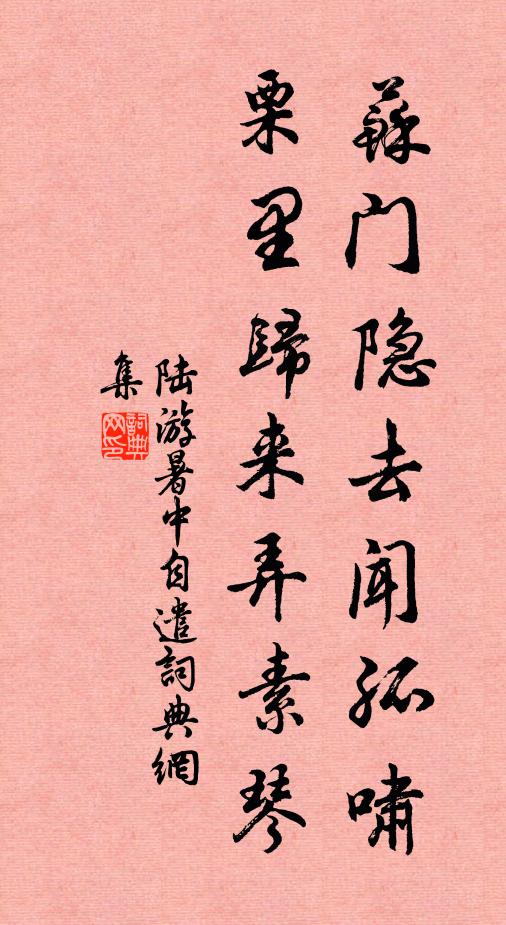 蘇门隐去闻孤啸
栗里歸来弄素琴
陆游暑中自遣詞典網
集
詞典网印